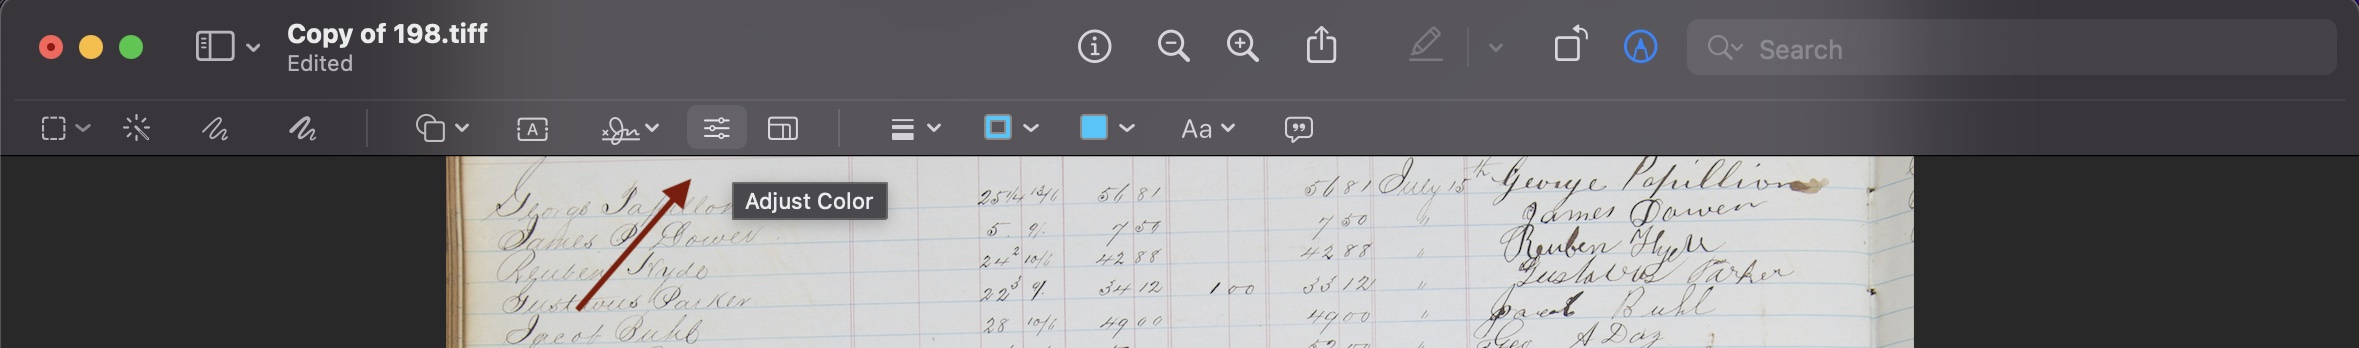 Copy of 198.tiff
Edited
Search
A
Aa
Adjust Color
George Papillion 25¼ 56 81 56 81 July 15th George Papillion
James P. Dower 5 9/. 7 50 7 50 " James Dower
Reuben Hyde 24² 10/6 42 88 42 88 " Reuben Hyde
Gustavus Parker 22³ 9/. 34 12 1 00 33 12 " Gustavus Parker
Jacob Buhl 28 10/6 49 00 49 00 " Jacob Buhl
Geo A Day